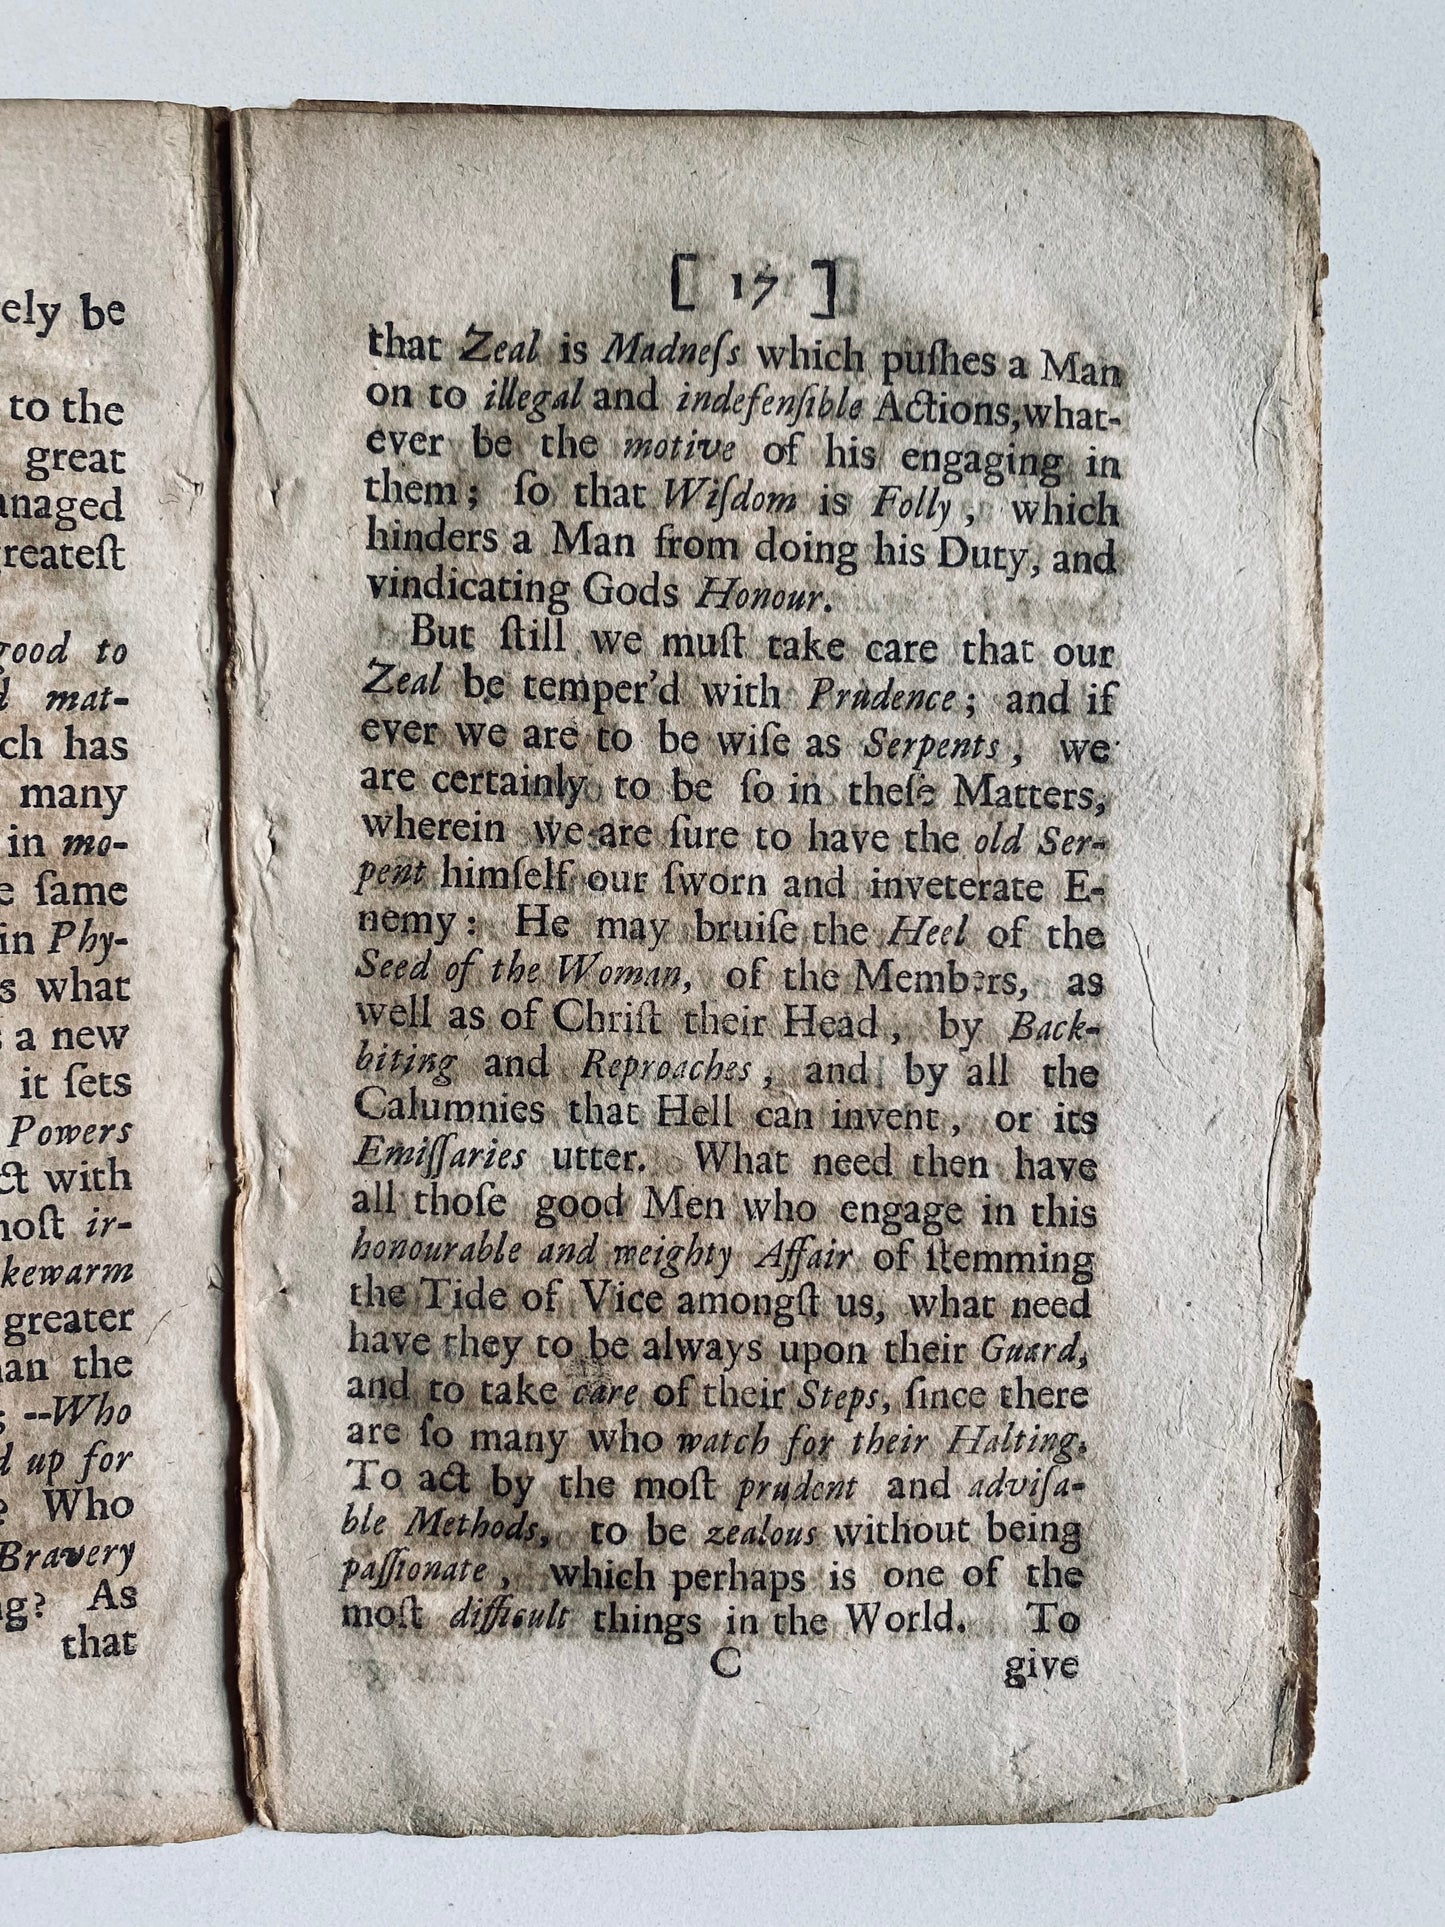 ely be
to the
great
anaged
reateſt
good to
mat-
ch has
many
in mo-
e ſame
in Phy-
s what
a new
it ſets
Powers
ct with
moſt ir-
kewarm
greater
han the
--Who
d up for
Who
Bravery
ng? As
that
[ 17 ]
that Zeal is Madneſs which puſhes a Man
on to illegal and indefenſible Actions, what-
ever be the motive of his engaging in
them; ſo that Wiſdom is Folly, which
hinders a Man from doing his Duty, and
vindicating Gods Honour.
But ſtill we muſt take care that our
Zeal be temper'd with Prudence; and if
ever we are to be wiſe as Serpents, we
are certainly to be ſo in theſe Matters,
wherein we are ſure to have the old Ser-
pent himſelf our ſworn and inveterate E-
nemy: He may bruiſe the Heel of the
Seed of the Woman, of the Members, as
well as of Chriſt their Head, by Back-
biting and Reproaches, and by all the
Calumnies that Hell can invent, or its
Emiſſaries utter. What need then have
all thoſe good Men who engage in this
honourable and weighty Affair of ſtemming
the Tide of Vice amongſt us, what need
have they to be always upon their Guard,
and to take care of their Steps, ſince there
are ſo many who watch for their Halting.
To act by the moſt prudent and adviſa-
ble Methods, to be zealous without being
paſſionate, which perhaps is one of the
moſt difficult things in the World. To
C give